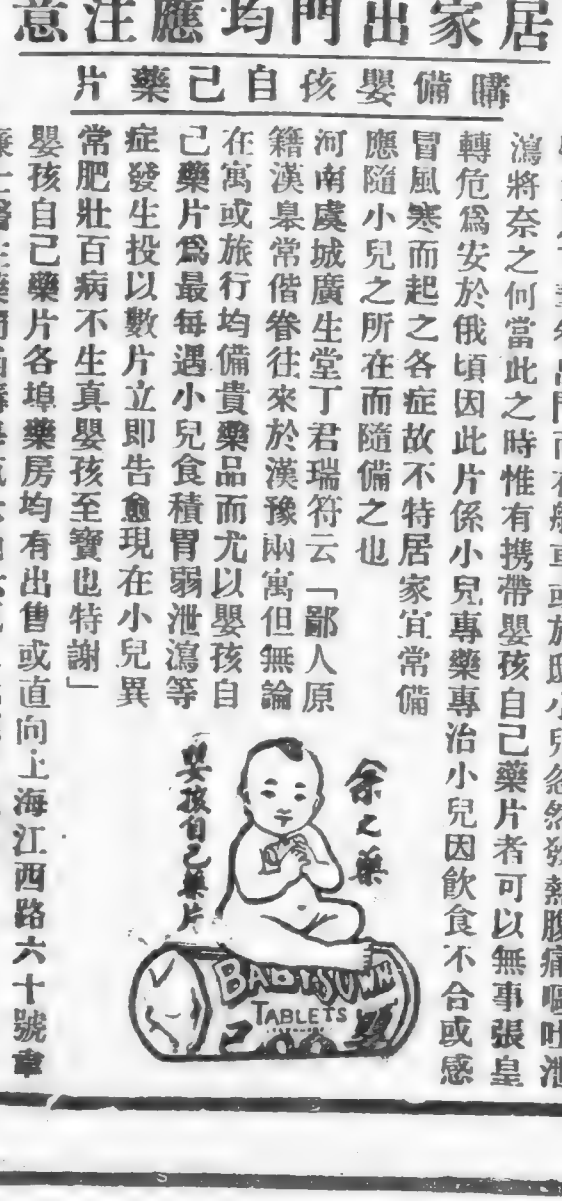 居家出門均應注意
購備嬰孩自己藥片
出門而有
或於
小兒忽然發熱腹痛嘔吐泄
瀉將奈之何當此之時惟有携帶嬰孩自己藥片者可以無事張皇
轉危爲安於俄頃因此片係小兒專藥專治小兒因飲食不合或感
冒風寒而起之各症故不特居家宜常備
應隨小兒之所在而隨備之也
河南虞城廣生堂丁君瑞符云「鄙人原
籍漢皋常偕眷往來於漢豫兩寓但無論
在寓或旅行均備貴藥品而尤以嬰孩自
己藥片爲最每遇小兒食積胃弱泄瀉等
症發生投以數片立即告愈現在小兒異
常肥壯百病不生真嬰孩至寶也特謝」
嬰孩自己藥片各埠藥房均有出售或直向上海江西路六十號韋
余之藥
嬰孩自己藥片
BABY'S OWN
TABLETS